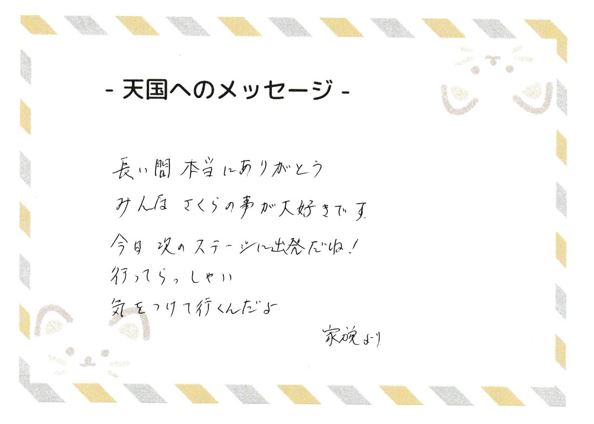 - 天国へのメッセージ -
長い間 本当にありがとう
みんな さくらの事が大好きです
今日 次のステージに出発だね!
行ってらっしゃい
気をつけて行くんだよ
家族より